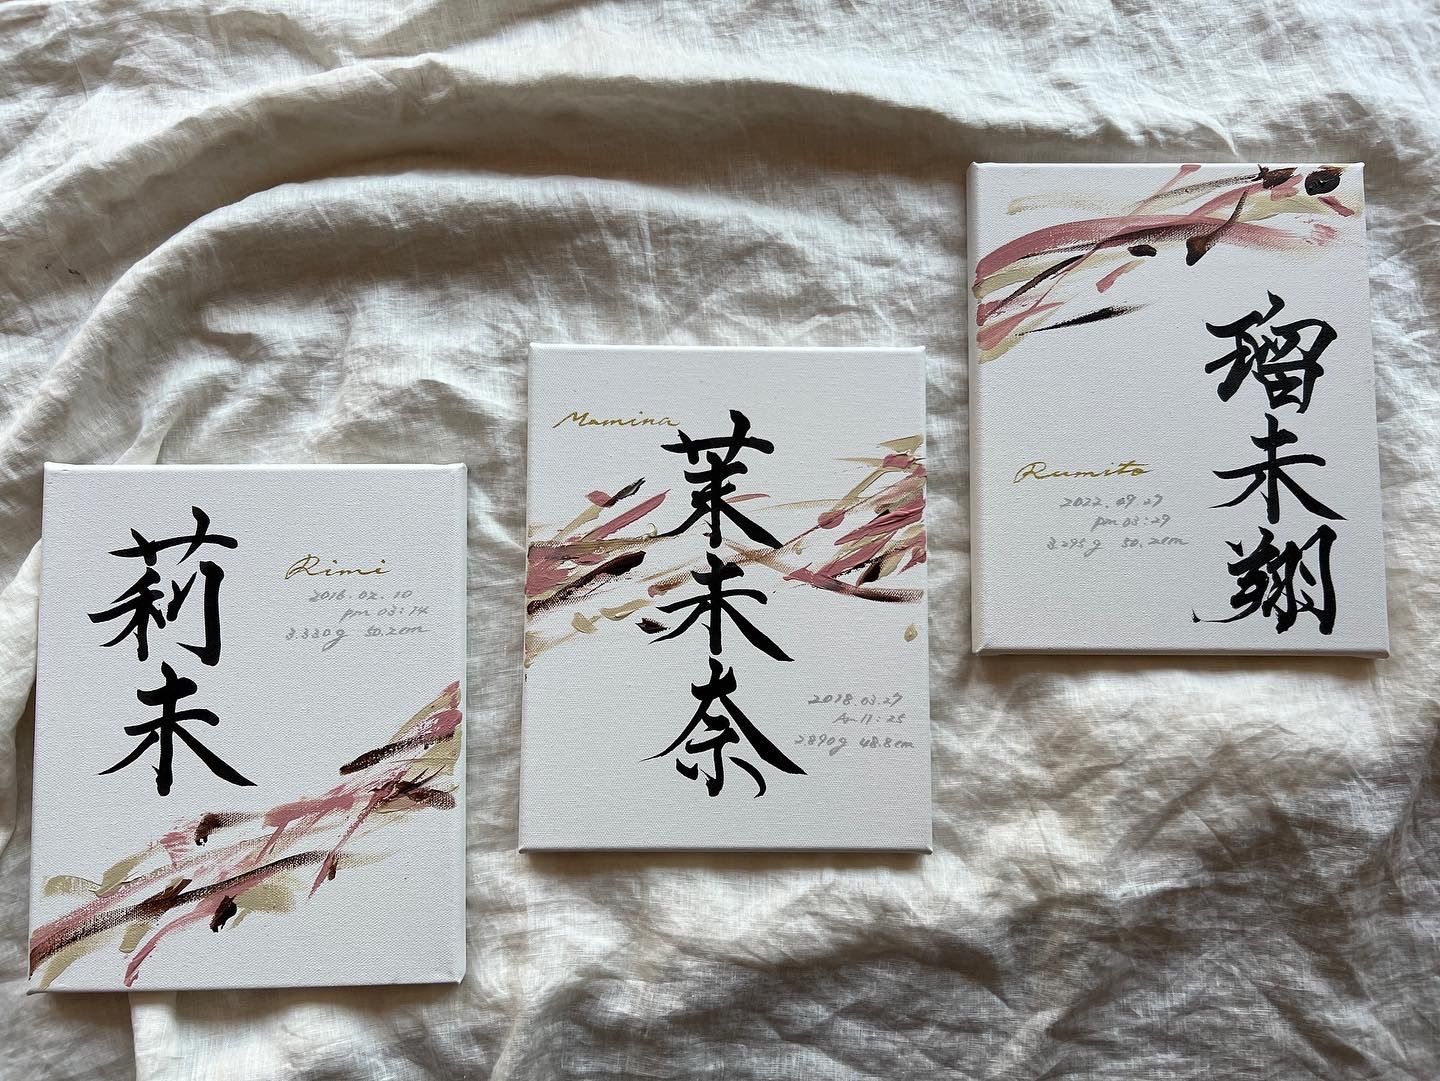 莉未
Rimi
2016.02.10
pm 03:14
3.330g 50.2cm
Mamina
茉未奈
2018.03.27
Am 11:25
2890g 48.8cm
瑠未翔
Rumito
2022.09.27
pm 03:29
3.295g 50.2cm